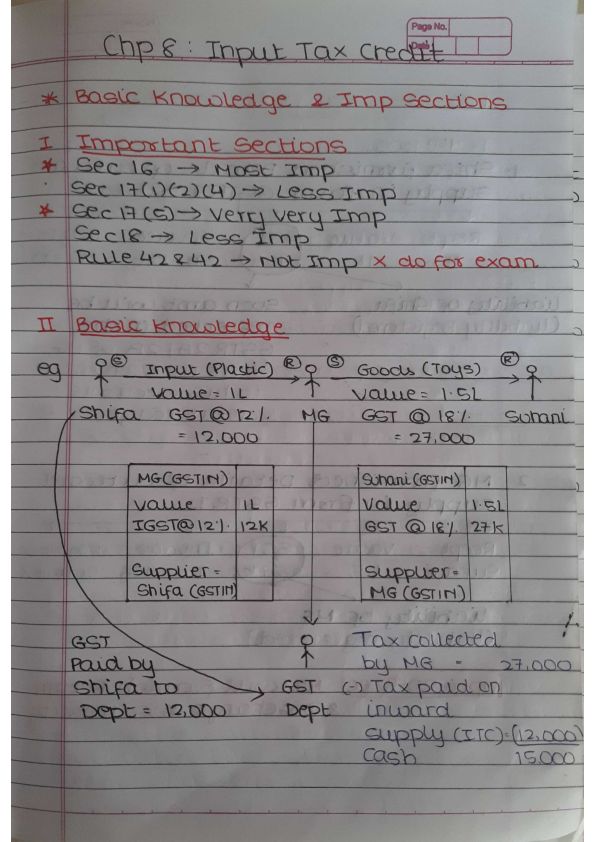 Page No.
Date
Chp 8 : Input Tax Credit
* Basic Knowledge & Imp Sections
I Important Sections
* Sec 16 → Most Imp
Sec 17(1)(2)(4) → Less Imp
* Sec 17(5) → Verry Very Imp
Sec 18 → Less Imp
Rule 42 & 42 → Not Imp x do for exam
II Basic Knowledge
eg S Input (Plastic) R S Goods (Toys) R
Value = 1L Value = 1.5L
Shifa GST @ 12% MG GST @ 18% Suhani
= 12,000 = 27,000
MG (GSTIN) Suhani (GSTIN)
Value 1L Value 1.5L
IGST @ 12% 12K GST @ 18% 27K
Supplier = Supplier =
Shifa (GSTIN) MG (GSTIN)
GST Tax collected
Paid by by MG = 27,000
Shifa to GST (-) Tax paid on
Dept = 12,000 Dept inward
Supply (ITC) = (12,000)
Cash 15,000